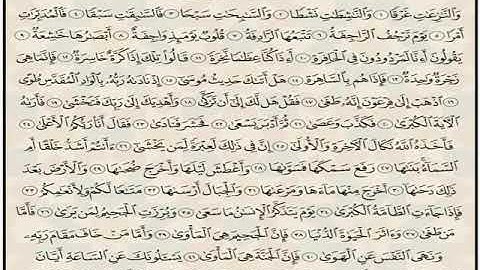 وَٱلنَّٰزِعَٰتِ غَرْقًا ١ وَٱلنَّٰشِطَٰتِ نَشْطًا ٢ وَٱلسَّٰبِحَٰتِ سَبْحًا ٣ فَٱلسَّٰبِقَٰتِ سَبْقًا ٤ فَٱلْمُدَبِّرَٰتِ
أَمْرًا ٥ يَوْمَ تَرْجُفُ ٱلرَّاجِفَةُ ٦ تَتْبَعُهَا ٱلرَّادِفَةُ ٧ قُلُوبٌ يَوْمَئِذٍ وَاجِفَةٌ ٨ أَبْصَٰرُهَا خَٰشِعَةٌ ٩
يَقُولُونَ أَءِنَّا لَمَرْدُودُونَ فِى ٱلْحَافِرَةِ ١٠ أَءِذَا كُنَّا عِظَٰمًا نَّخِرَةً ١١ قَالُوا۟ تِلْكَ إِذًا كَرَّةٌ خَاسِرَةٌ ١٢ فَإِنَّمَا هِىَ
زَجْرَةٌ وَٰحِدَةٌ ١٣ فَإِذَا هُم بِٱلسَّاهِرَةِ ١٤ هَلْ أَتَىٰكَ حَدِيثُ مُوسَىٰٓ ١٥ إِذْ نَادَىٰهُ رَبُّهُۥ بِٱلْوَادِ ٱلْمُقَدَّسِ طُوًى
١٦ ٱذْهَبْ إِلَىٰ فِرْعَوْنَ إِنَّهُۥ طَغَىٰ ١٧ فَقُلْ هَل لَّكَ إِلَىٰٓ أَن تَزَكَّىٰ ١٨ وَأَهْدِيَكَ إِلَىٰ رَبِّكَ فَتَخْشَىٰ ١٩ فَأَرَىٰهُ
ٱلْءَايَةَ ٱلْكُبْرَىٰ ٢٠ فَكَذَّبَ وَعَصَىٰ ٢١ ثُمَّ أَدْبَرَ يَسْعَىٰ ٢٢ فَحَشَرَ فَنَادَىٰ ٢٣ فَقَالَ أَنَا۠ رَبُّكُمُ ٱلْأَعْلَىٰ ٢٤
فَأَخَذَهُ ٱللَّهُ نَكَالَ ٱلْءَاخِرَةِ وَٱلْأُولَىٰٓ ٢٥ إِنَّ فِى ذَٰلِكَ لَعِبْرَةً لِّمَن يَخْشَىٰٓ ٢٦ ءَأَنتُمْ أَشَدُّ خَلْقًا أَمِ
ٱلسَّمَآءُ بَنَىٰهَا ٢٧ رَفَعَ سَمْكَهَا فَسَوَّىٰهَا ٢٨ وَأَغْطَشَ لَيْلَهَا وَأَخْرَجَ ضُحَىٰهَا ٢٩ وَٱلْأَرْضَ بَعْدَ
ذَٰلِكَ دَحَىٰهَآ ٣٠ أَخْرَجَ مِنْهَا مَآءَهَا وَمَرْعَىٰهَا ٣١ وَٱلْجِبَالَ أَرْسَىٰهَا ٣٢ مَتَٰعًا لَّكُمْ وَلِأَنْعَٰمِكُمْ ٣٣
فَإِذَا جَآءَتِ ٱلطَّآمَّةُ ٱلْكُبْرَىٰ ٣٤ يَوْمَ يَتَذَكَّرُ ٱلْإِنسَٰنُ مَا سَعَىٰ ٣٥ وَبُرِّزَتِ ٱلْجَحِيمُ لِمَن يَرَىٰ ٣٦ فَأَمَّا
مَن طَغَىٰ ٣٧ وَءَاثَرَ ٱلْحَيَوٰةَ ٱلدُّنْيَا ٣٨ فَإِنَّ ٱلْجَحِيمَ هِىَ ٱلْمَأْوَىٰ ٣٩ وَأَمَّا مَنْ خَافَ مَقَامَ رَبِّهِۦ
وَنَهَى ٱلنَّفْسَ عَنِ ٱلْهَوَىٰ ٤٠ فَإِنَّ ٱلْجَنَّةَ هِىَ ٱلْمَأْوَىٰ ٤١ يَسْـَٔلُونَكَ عَنِ ٱلسَّاعَةِ أَيَّانَ